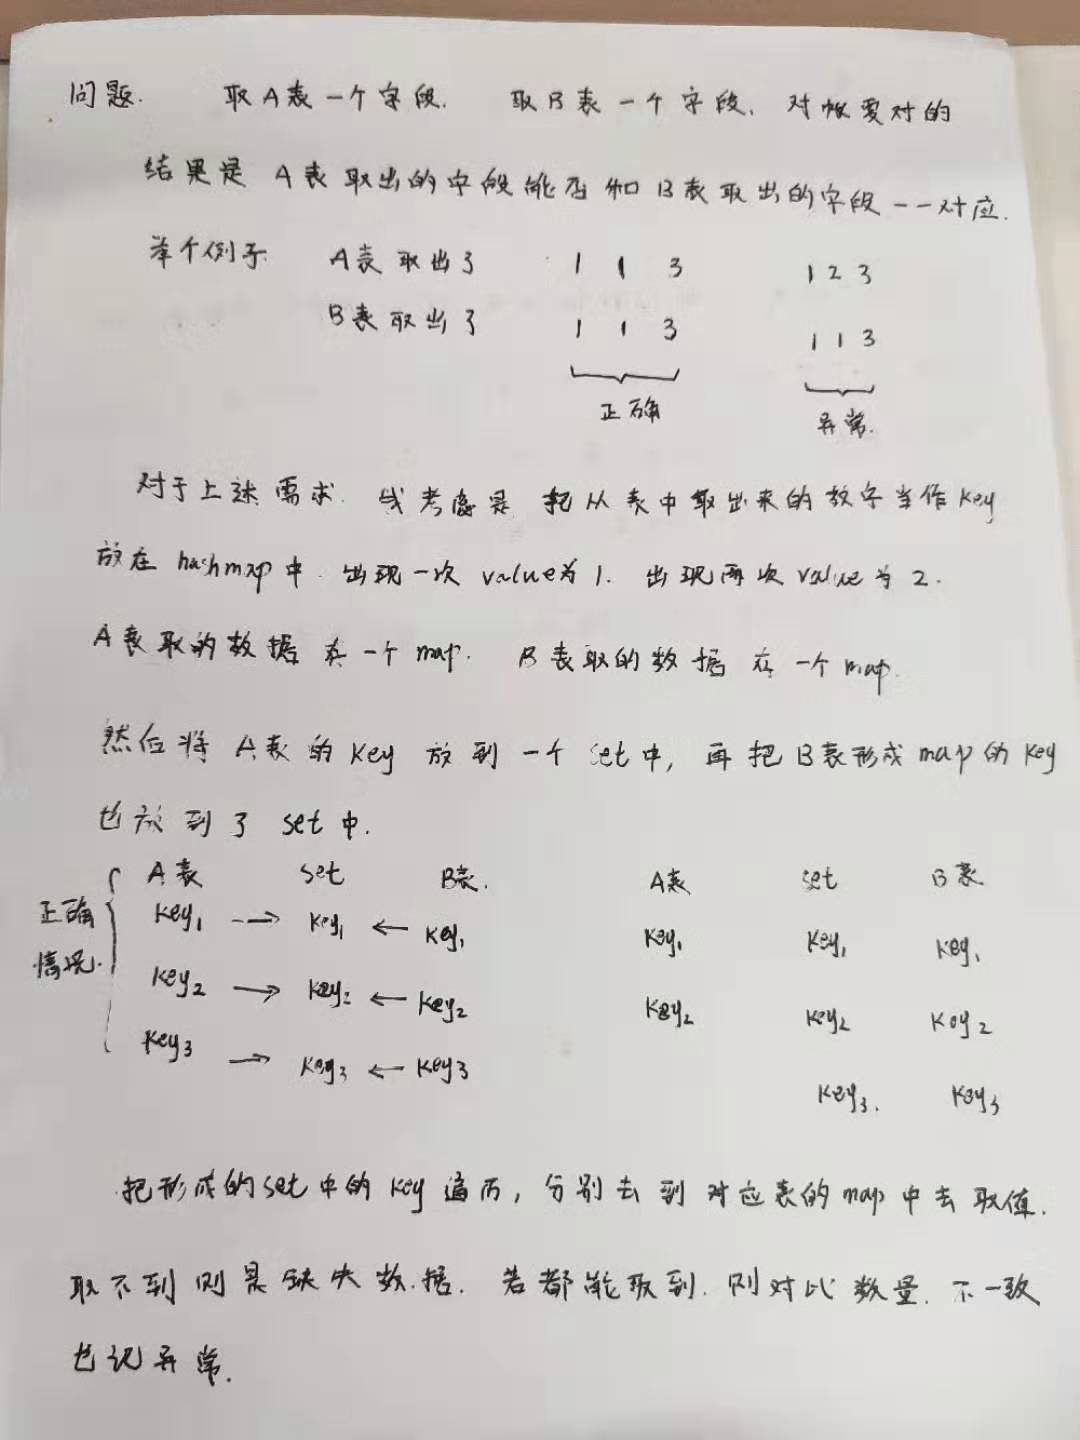 问题. 取A表一个字段. 取B表一个字段. 对帐要对的
结果是 A表取出的字段能否和B表取出的字段一一对应.
举个例子 A表取出了 1 1 3 1 2 3
B表取出了 1 1 3 1 1 3
正确 异常.
对于上述需求. 我考虑是 把从表中取出来的数字当作key
放在 hashmap中. 出现一次 value为1. 出现两次 value为2.
A表取的数据在一个map. B表取的数据在一个map.
然后将 A表的key 放到一个set中, 再把B表形成map的key
也放到了 set中.
A表 set B表. A表 set B表
正确 key1 → key1 ← key1 key1 key1 key1
情况. key2 → key2 ← key2 key2 key2 key2
key3 → key3 ← key3 key3. key3
把形成的set中的key遍历, 分别去到对应表的map中去取值.
取不到则是缺失数据. 若都能取到. 则对比数量. 不一致
也记异常.